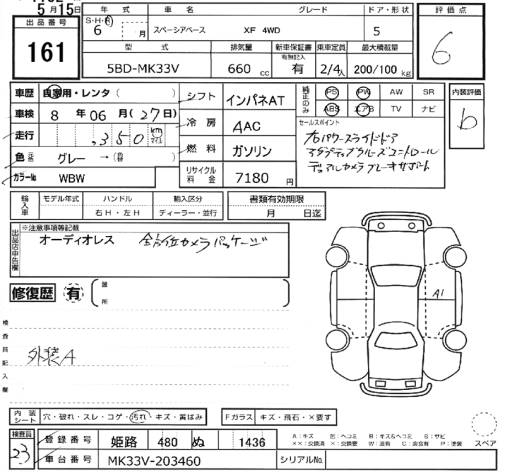 5月15日
出品番号
161
年式 車名 グレード ドア・形状
S・H・R 6 月 スペーシアベース XF 4WD 5
型式 排気量 新車保証書 乗車定員 最大積載量
5BD-MK33V 660 cc 有無記入 有 2/4人 200/100 kg
評価点
6
車歴 自家用・レンタ( )
車検 8年06月(27日)
走行 ,350 km マイル
色 グレー→( )
カラーNo WBW
シフト インパネAT
冷房 AAC
燃料 ガソリン
リサイクル料金 7180円
純正のみ PS PW AW SR
ABS エアB TV ナビ
セールスポイント
パワースライドドア
アダプティブクルーズコントロール
デュアルカメラブレーキサポート
内装評価
b
輸入車 モデル年式 ハンドル 輸入区分
右H・左H ディーラー・並行
書類有効期限
月 日迄
出品店申告欄
※注意事項等記載
オーディオレス 全方位カメラパッケージ
修復歴 有 箇所
検査員記入欄
外装A
A1
内装シート 穴・破れ・スレ・コゲ・汚れ・キズ・黄ばみ
Fガラス キズ・飛石・×要す
検査員
23
登録番号 姫路 480 ぬ 1436
車台番号 MK33V-203460
シリアルNo.
A:キズ
スペア